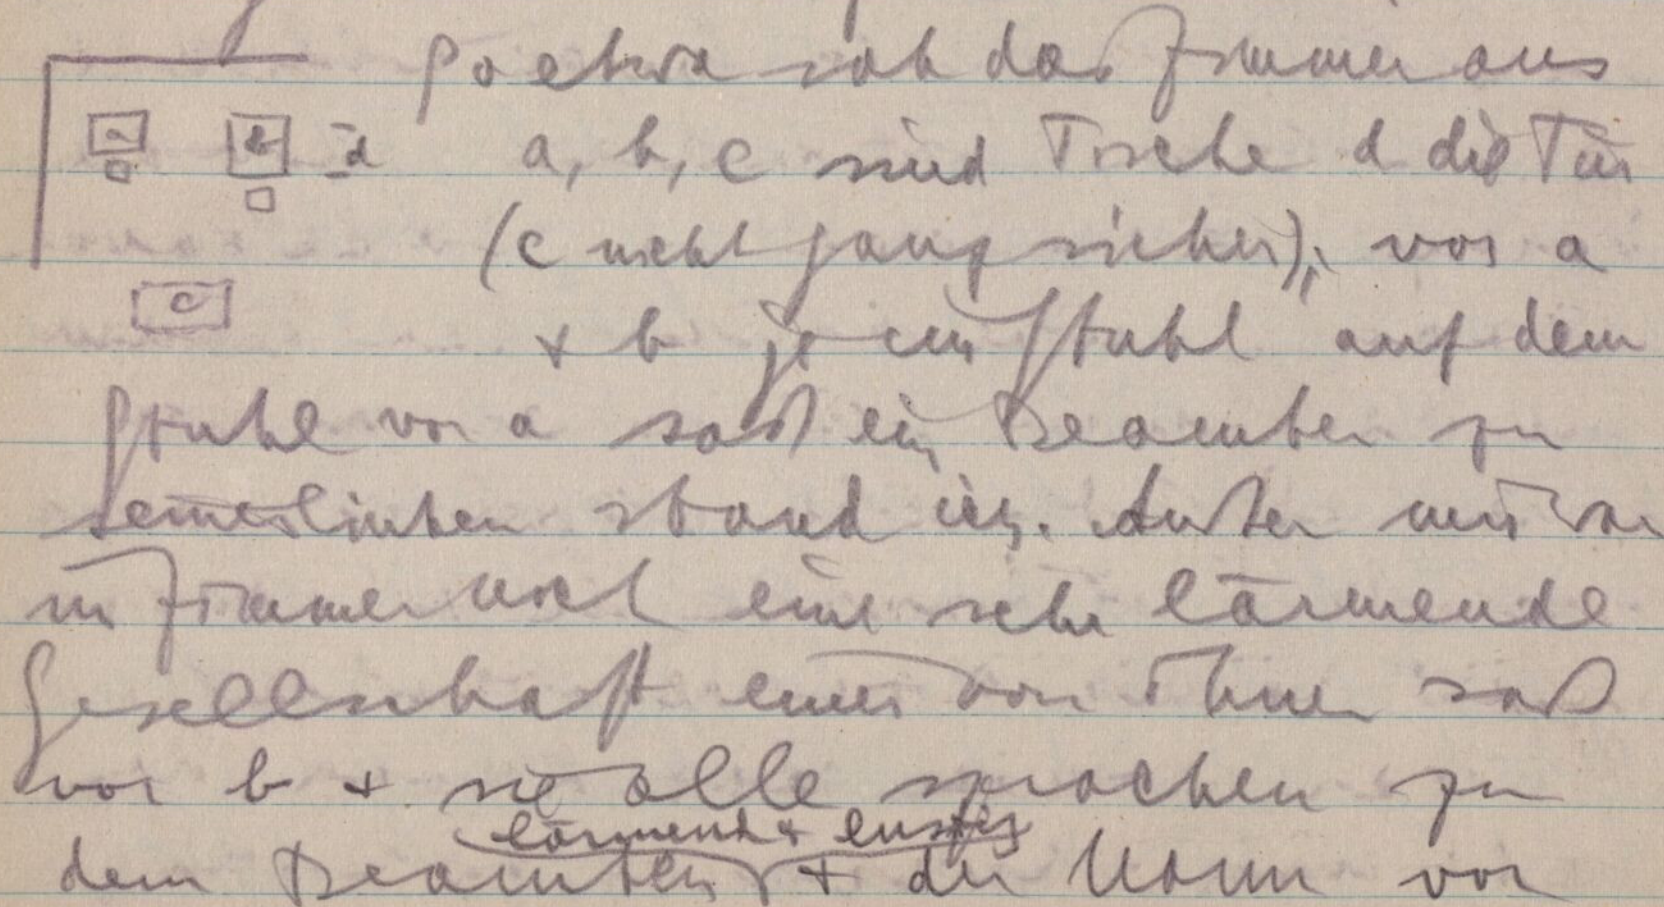 So etwa sah das Zimmer aus
a b d a, b, c sind Tische d die Tür
(c nicht ganz sicher); vor a
c
+ b je ein Stuhl auf dem
Stuhl vor a saß ein Beamter zu
seiner linken stand ich. Außer mir war
im Zimmer noch eine sehr lärmende
Gesellschaft einer von Ihnen saß
vor b + sie alle sprachen zu
lärmend + lustig
dem Beamten + der Mann vor